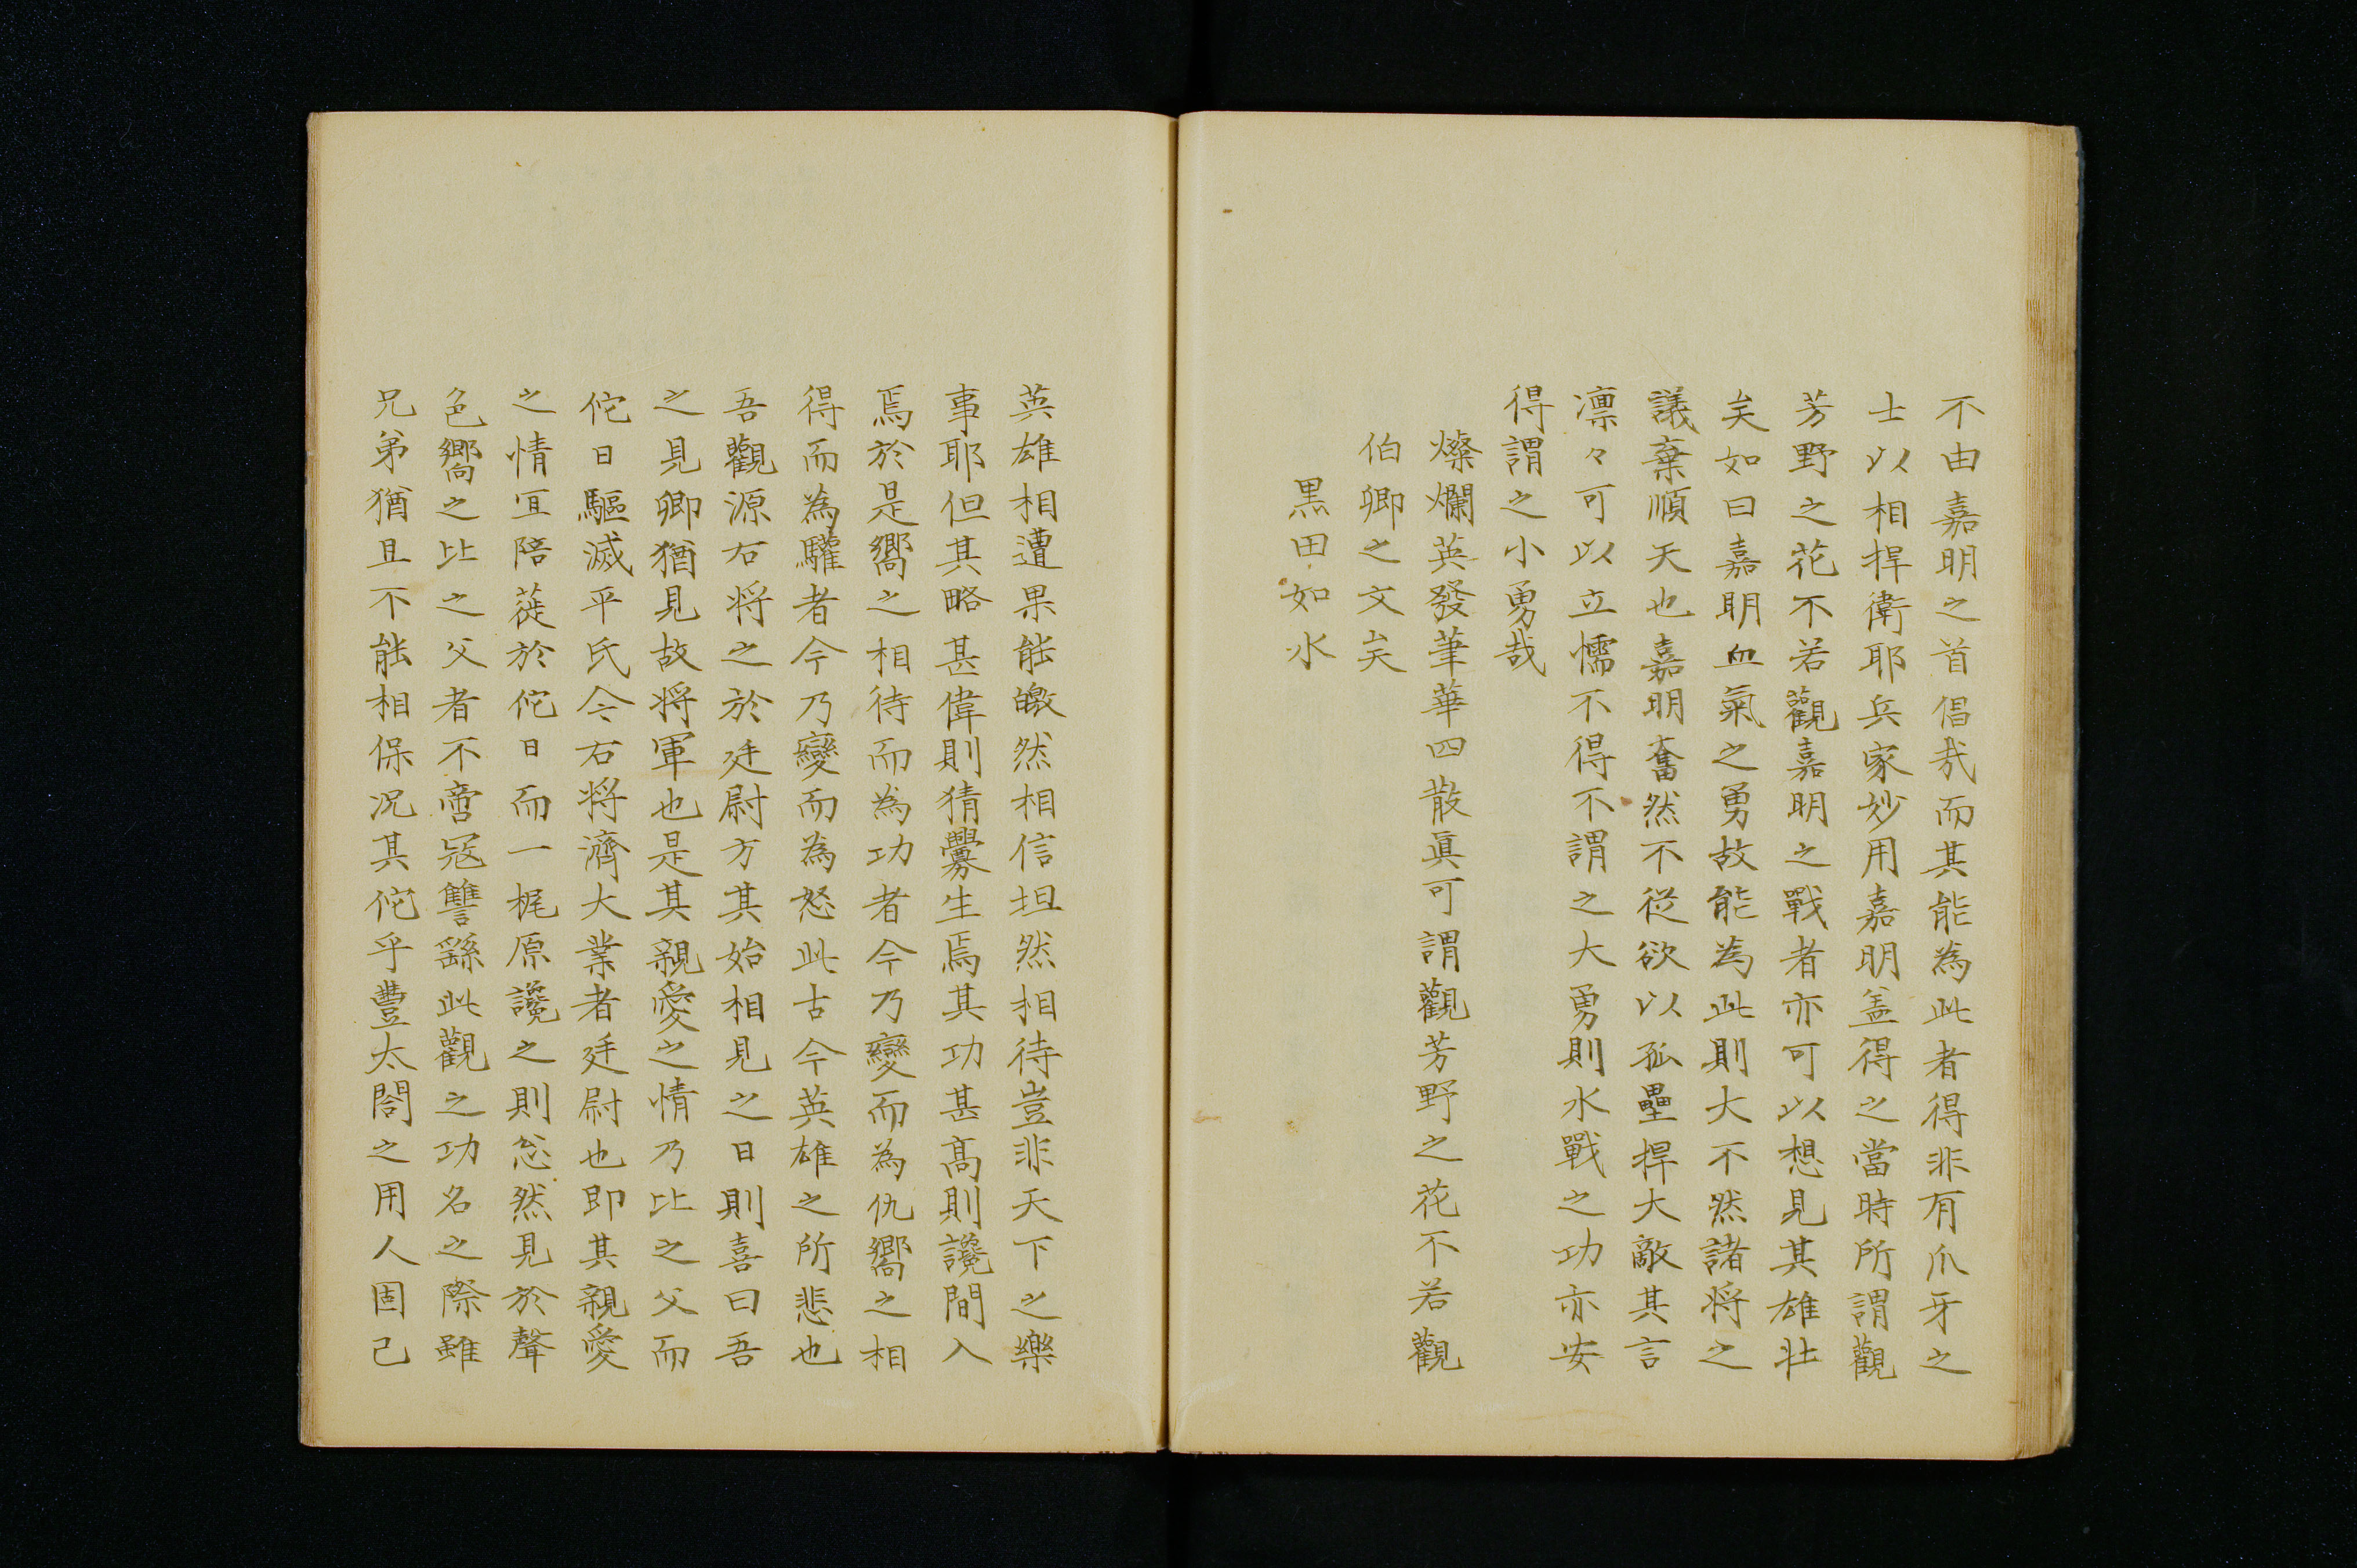 不由嘉明之首倡哉而其能為此者得非有爪牙之
士以相捍衛耶兵家妙用嘉明盖得之當時所謂觀
芳野之花不若觀嘉明之戰者亦可以想見其雄壮
矣如曰嘉明血氣之勇故能為此則大不然諸将之
議棄順天也嘉明奮然不從欲以孤壘捍大敵其言
凛々可以立懦不得不謂之大勇則水戰之功亦安
得謂之小勇哉
燦爛英發筆華四散眞可謂觀芳野之花不若觀
伯卿之文矣
黒田如水
英雄相遭果能皦然相信坦然相待豈非天下之樂
事耶但其略甚偉則猜釁生焉其功甚髙則讒間入
焉於是嚮之相待而為功者今乃變而為仇嚮之相
得而為驩者今乃變而為怒此古今英雄之所悲也
吾觀源右将之於廷尉方其始相見之日則喜曰吾
之見卿猶見故将軍也是其親愛之情乃比之父而
佗日驅滅平氏令右将濟大業者廷尉也即其親愛
之情宜陪蓰於佗日而一梶原讒之則忿然見於聲
色嚮之比之父者不啻冦讐繇此觀之功名之際雖
兄弟猶且不能相保况其佗乎豊太閤之用人固己